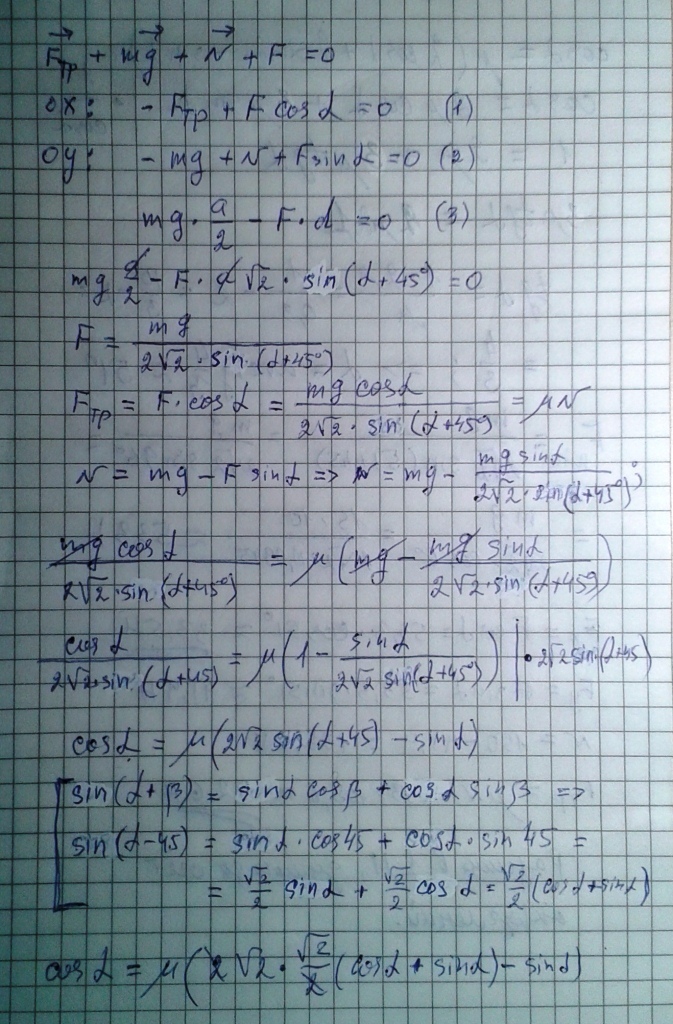 F⃗тр + mg⃗ + N⃗ + F = 0
ox: - Fтр + F cos α = 0 (1)
oy: - mg + N + F sin α = 0 (2)
mg · a/2 - F · d = 0 (3)
mg a/2 - F · a √2 · sin (α + 45°) = 0
F = mg / (2√2 · sin (α+45°))
Fтр = F · cos α = mg cos α / (2√2 · sin (α+45°)) = μN
N = mg - F sin α => N = mg - mg sin α / (2√2 · sin(α+45°));
mg cos α / (2√2 · sin (α+45°)) = μ (mg - mg sin α / (2√2 · sin (α+45°)))
cos α / (2√2 · sin (α+45)) = μ (1 - sin α / (2√2 sin(α+45°))) | · 2√2 sin(α+45)
cos α = μ (2√2 sin (α+45) - sin α)
[ sin (α + β) = sin α cos β + cos α sin β =>
sin (α-45) = sin α · cos 45 + cos α · sin 45 =
= √2/2 sin α + √2/2 cos α = √2/2 (cos α + sin α)
cos α = μ (2√2 · √2/2 (cos α + sin α) - sin α)